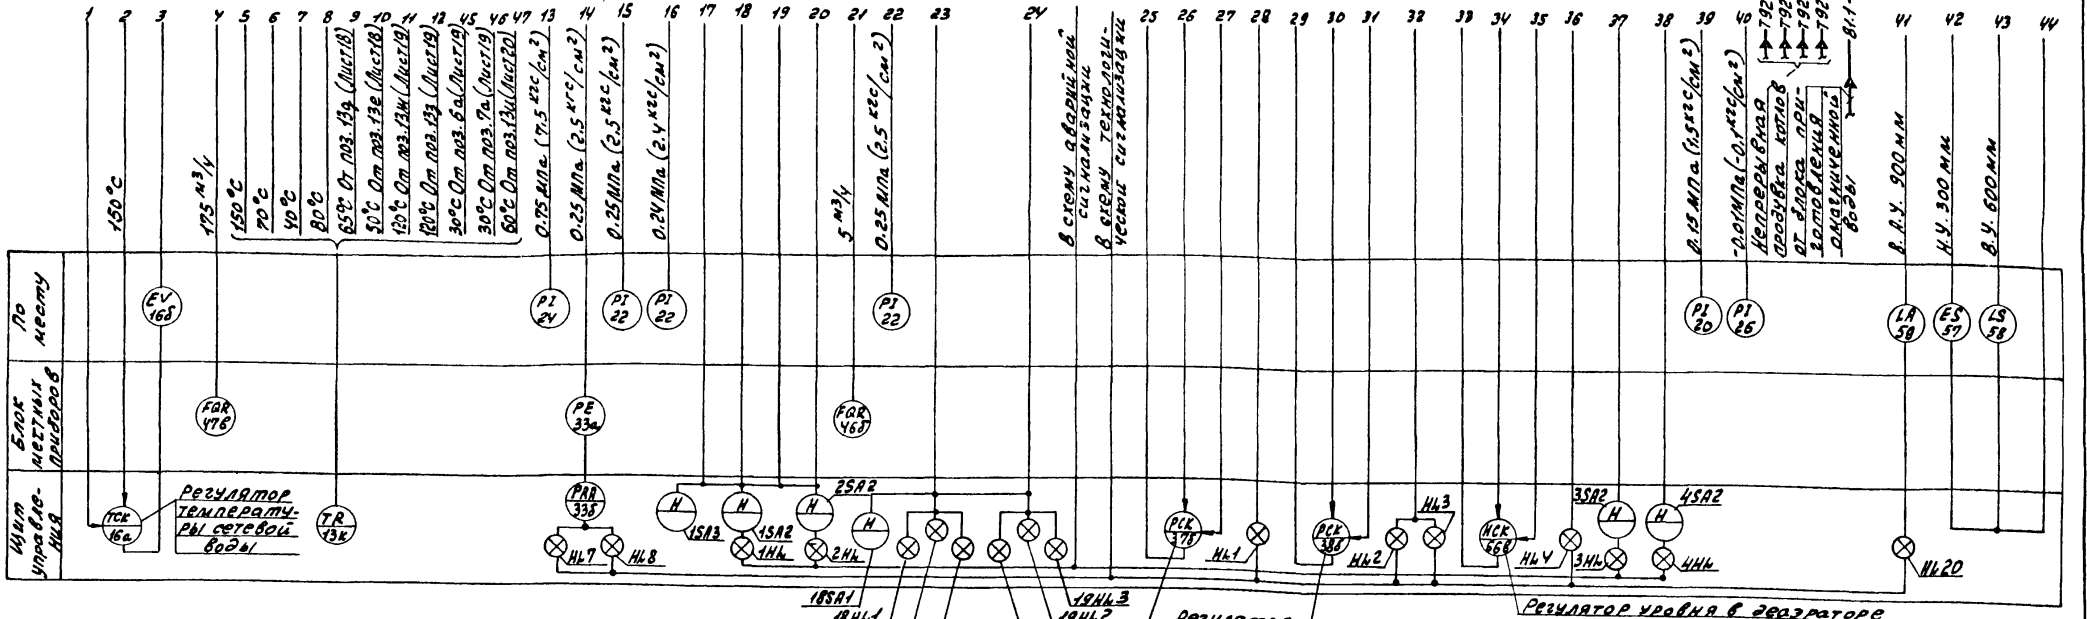 1 2 3 4 5 6 7 8 9 10 11 12 45 46 47 13 14 15 16 17 18 19 20 21 22 23 24 25 26 27 28 29 30 31 32 33 34 35 36 37 38 39 40 41 42 43 44
150°С
175 м³/ч
150°С
70°С
40°С
80°С
65°С От поз. 13д (Лист 18)
50°С От поз. 13е (Лист 18)
120°С От поз. 13ж (Лист 19)
120°С От поз. 13з (Лист 19)
30°С От поз. 6а (Лист 19)
30°С От поз. 7а (Лист 19)
60°С От поз. 13и (Лист 20)
0.75 МПа (7,5 кгс/см²)
0.25 МПа (2.5 кгс/см²)
0.25 МПа (2.5 кгс/см²)
0.24 МПа (2.4 кгс/см²)
5 м³/ч
0.25 МПа (2.5 кгс/см²)
В схему аварийной
сигнализации
В схему технологи-
ческой сигнализации
0.15 МПа (1,5 кгс/см²)
-0.01 МПа (-0,1 кгс/см²)
Непрерывная
продувка котлов
От блока при-
готовления
омагниченной
воды
Т92
Т92
Т92
Т92
В1.1
В.А.У. 900 мм
Н.У. 300 мм
В.У. 600 мм
По
месту
EV
16б
PI
24
PI
22
PI
22
PI
22
PI
20
PI
26
LA
59
ES
57
LS
58
Блок
местных
приборов
FQR
47в
PE
33а
FQR
46б
Щит
управле-
ния
TCK
16а
Регулятор
температу-
ры сетевой
воды
TR
13к
PRA
33б
HL7
HL8
H
1SA3
H
1SA2
1HL
H
2SA2
2HL
H
18SA1
18HL1
19HL3
19HL2
PCK
37б
HL1
PCK
38б
HL2
HL3
HCK
66в
HL4
3SA2
H
3HL
4SA2
H
4HL
HL20
Регулятор
Регулятор уровня в деаэраторе